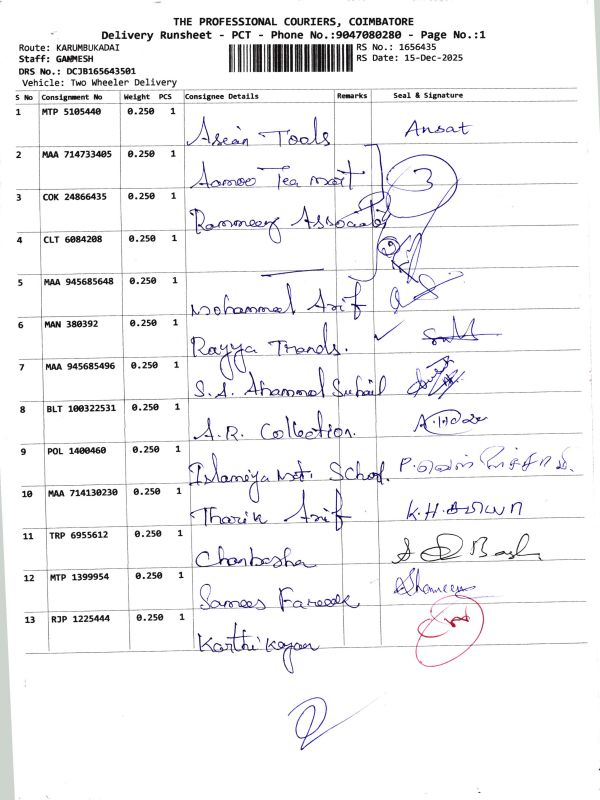 THE PROFESSIONAL COURIERS, COIMBATORE
Delivery Runsheet - PCT - Phone No.:9047080280 - Page No.:1
Route: KARUMBUKADAI RS No.: 1656435
Staff: GANMESH RS Date: 15-Dec-2025
DRS No.: DCJB165643501
Vehicle: Two Wheeler Delivery
S No Consignment No Weight PCS Consignee Details Remarks Seal & Signature
1 MTP 5105440 0.250 1 Asean Tools Ansat
2 MAA 714733405 0.250 1 Aamoo Tea Mart 3
3 COK 24866435 0.250 1 Associate
4 CLT 6084208 0.250 1
5 MAA 945685648 0.250 1 Mohammed Arif
6 MAN 380392 0.250 1 Rayya Trends.
7 MAA 945685496 0.250 1 S.A. Ahammed Suhail
8 BLT 100322531 0.250 1 A.R. Collection.
9 POL 1400460 0.250 1 Islamiya Mat. School.
10 MAA 714130230 0.250 1 Tharik Arif
11 TRP 6955612 0.250 1 Chanbasha
12 MTP 1399954 0.250 1 Samees Fareeek
13 RJP 1225444 0.250 1 Karthikeyan